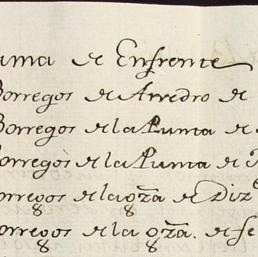 uma de Enfrente
Borregos de Arredro de
Borregos de la Punta de
Borregos de la Punta de
orregos de la gza de Diz
orregos de la gza. de fe